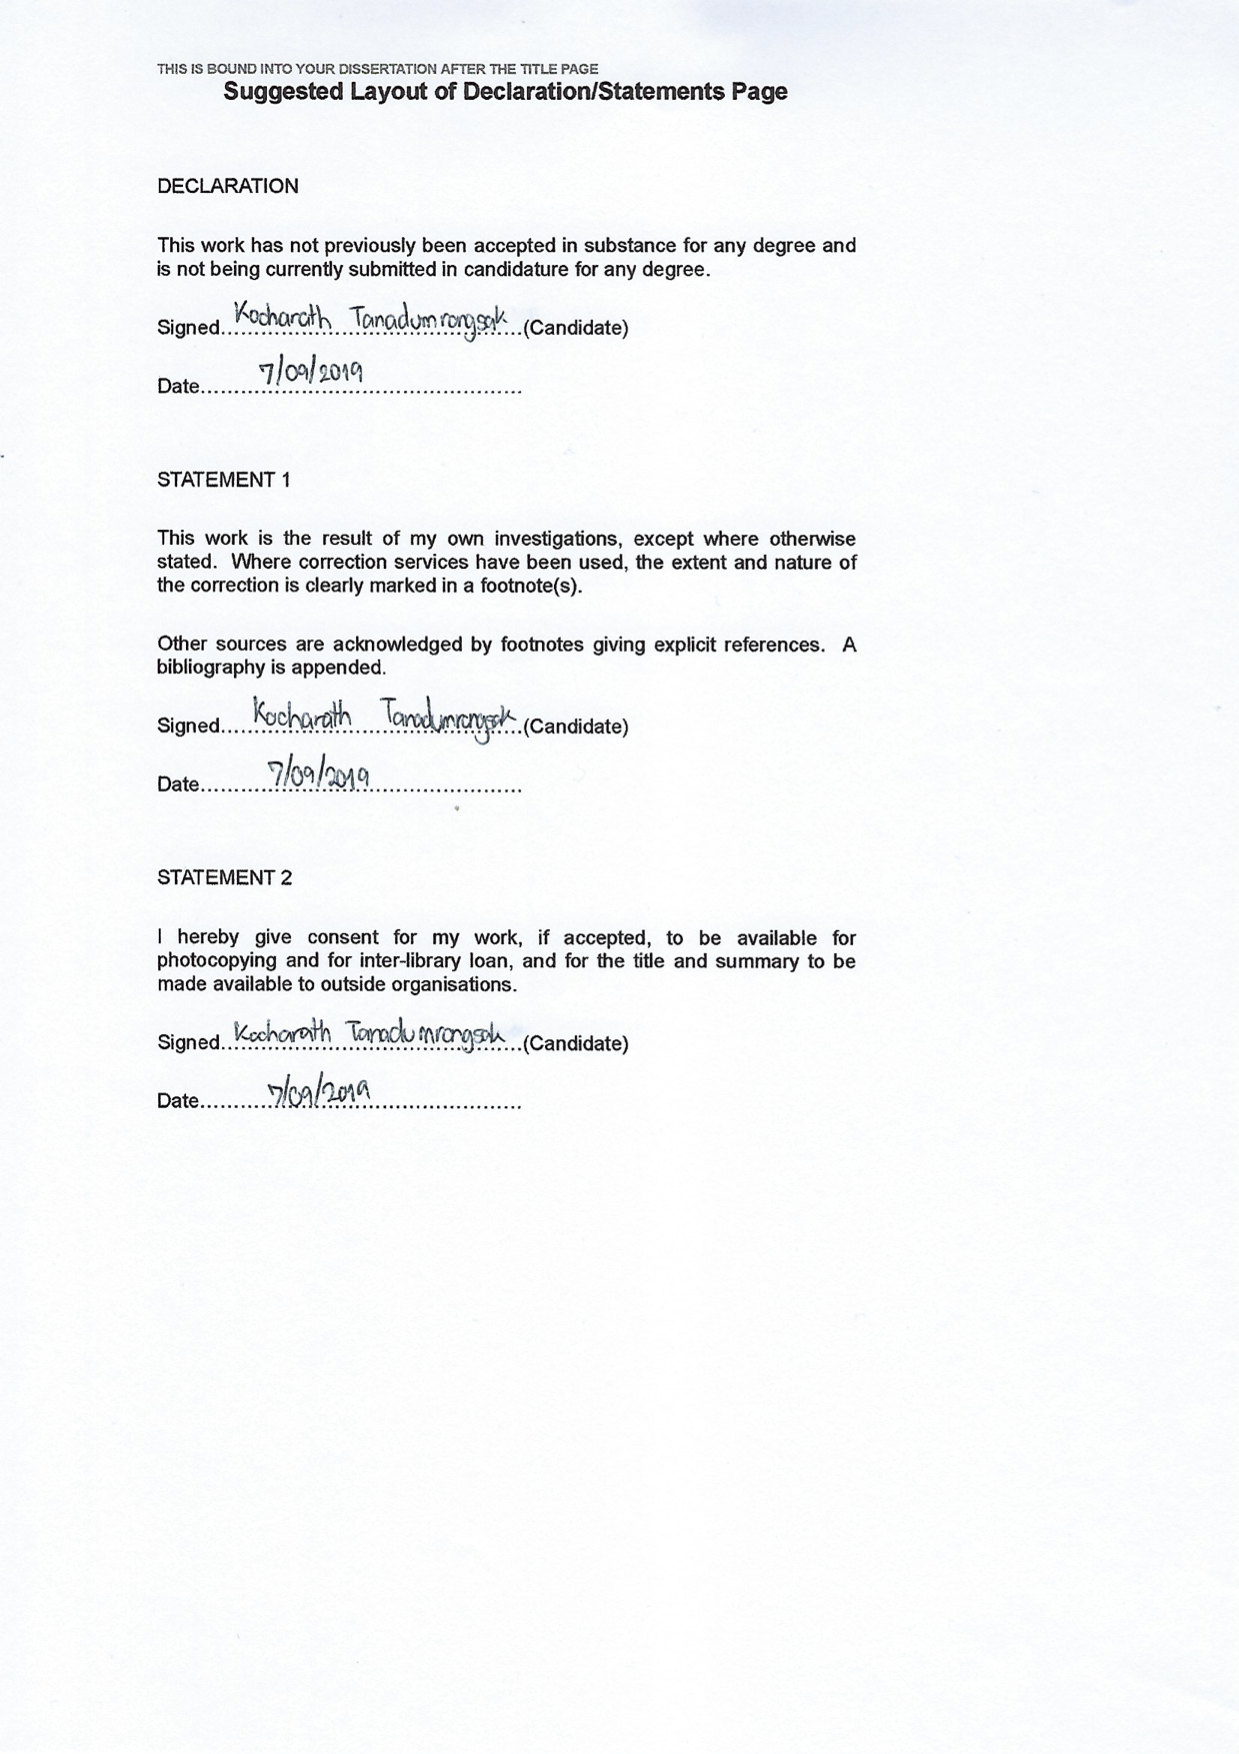 THIS IS BOUND INTO YOUR DISSERTATION AFTER THE TITLE PAGE
Suggested Layout of Declaration/Statements Page
DECLARATION
This work has not previously been accepted in substance for any degree and
is not being currently submitted in candidature for any degree.
Signed...Kocharath Tanadumrongsak...(Candidate)
Date...7/09/2019...
STATEMENT 1
This work is the result of my own investigations, except where otherwise
stated. Where correction services have been used, the extent and nature of
the correction is clearly marked in a footnote(s).
Other sources are acknowledged by footnotes giving explicit references. A
bibliography is appended.
Signed...Kocharath Tanadumrongsak...(Candidate)
Date...7/09/2019...
STATEMENT 2
I hereby give consent for my work, if accepted, to be available for
photocopying and for inter-library loan, and for the title and summary to be
made available to outside organisations.
Signed...Kocharath Tanadumrongsak...(Candidate)
Date...7/09/2019...